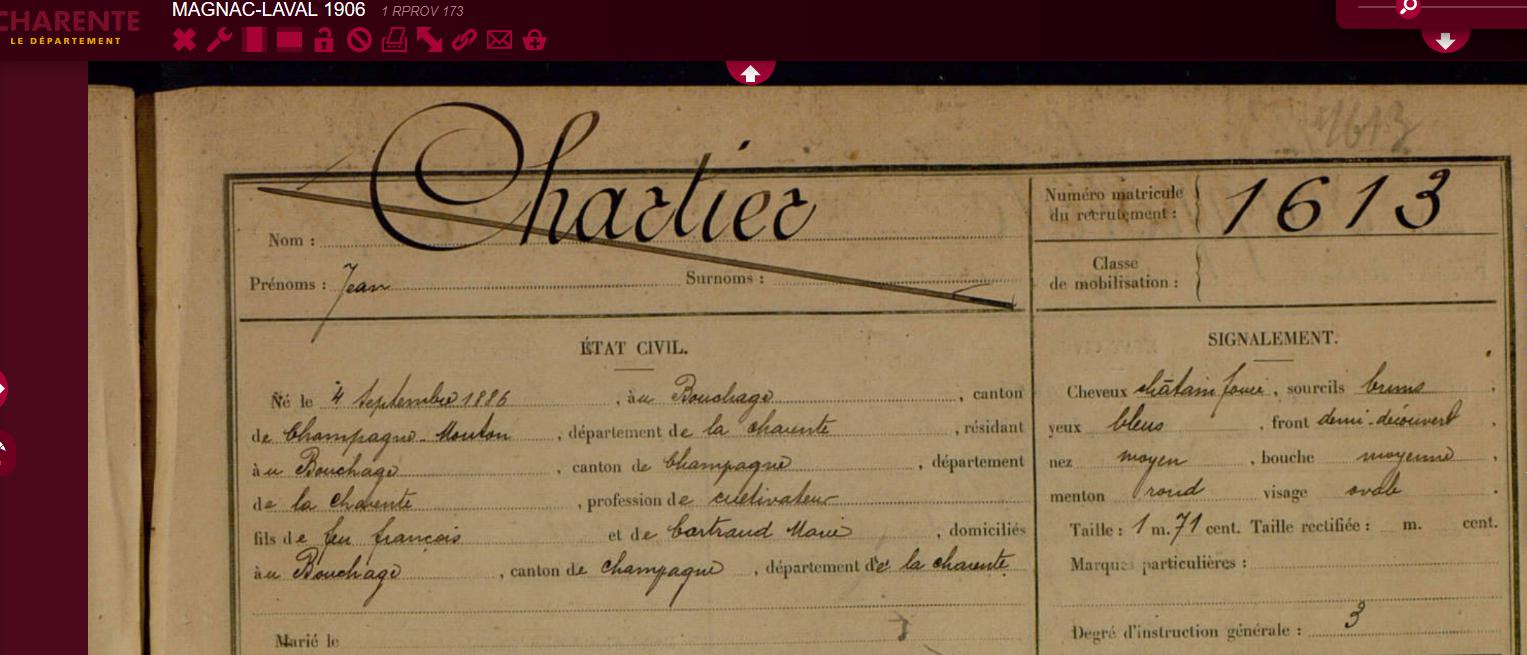 CHARENTE
LE DÉPARTEMENT
MAGNAC-LAVAL 1906 1 RPROV 173
1613
Chartier
Nom :
Numéro matricule
du recrutement : 1613
Prénoms : Jean Surnoms :
Classe
de mobilisation :
ÉTAT CIVIL.
Né le 4 Septembre 1886, à au Bouchage, canton
de Champagne-Mouton, département de la charente, résidant
à au Bouchage, canton de Champagne, département
de la charente, profession de cultivateur
fils de feu françois et de Cartraud Marie, domiciliés
à au Bouchage, canton de Champagne, département de la charente
Marié le
SIGNALEMENT.
Cheveux châtain foncé, sourcils bruns,
yeux bleus, front demi-découvert,
nez moyen, bouche moyenne,
menton rond visage ovale.
Taille : 1 m. 71 cent. Taille rectifiée : m. cent.
Marques particulières :
Degré d'instruction générale : 3